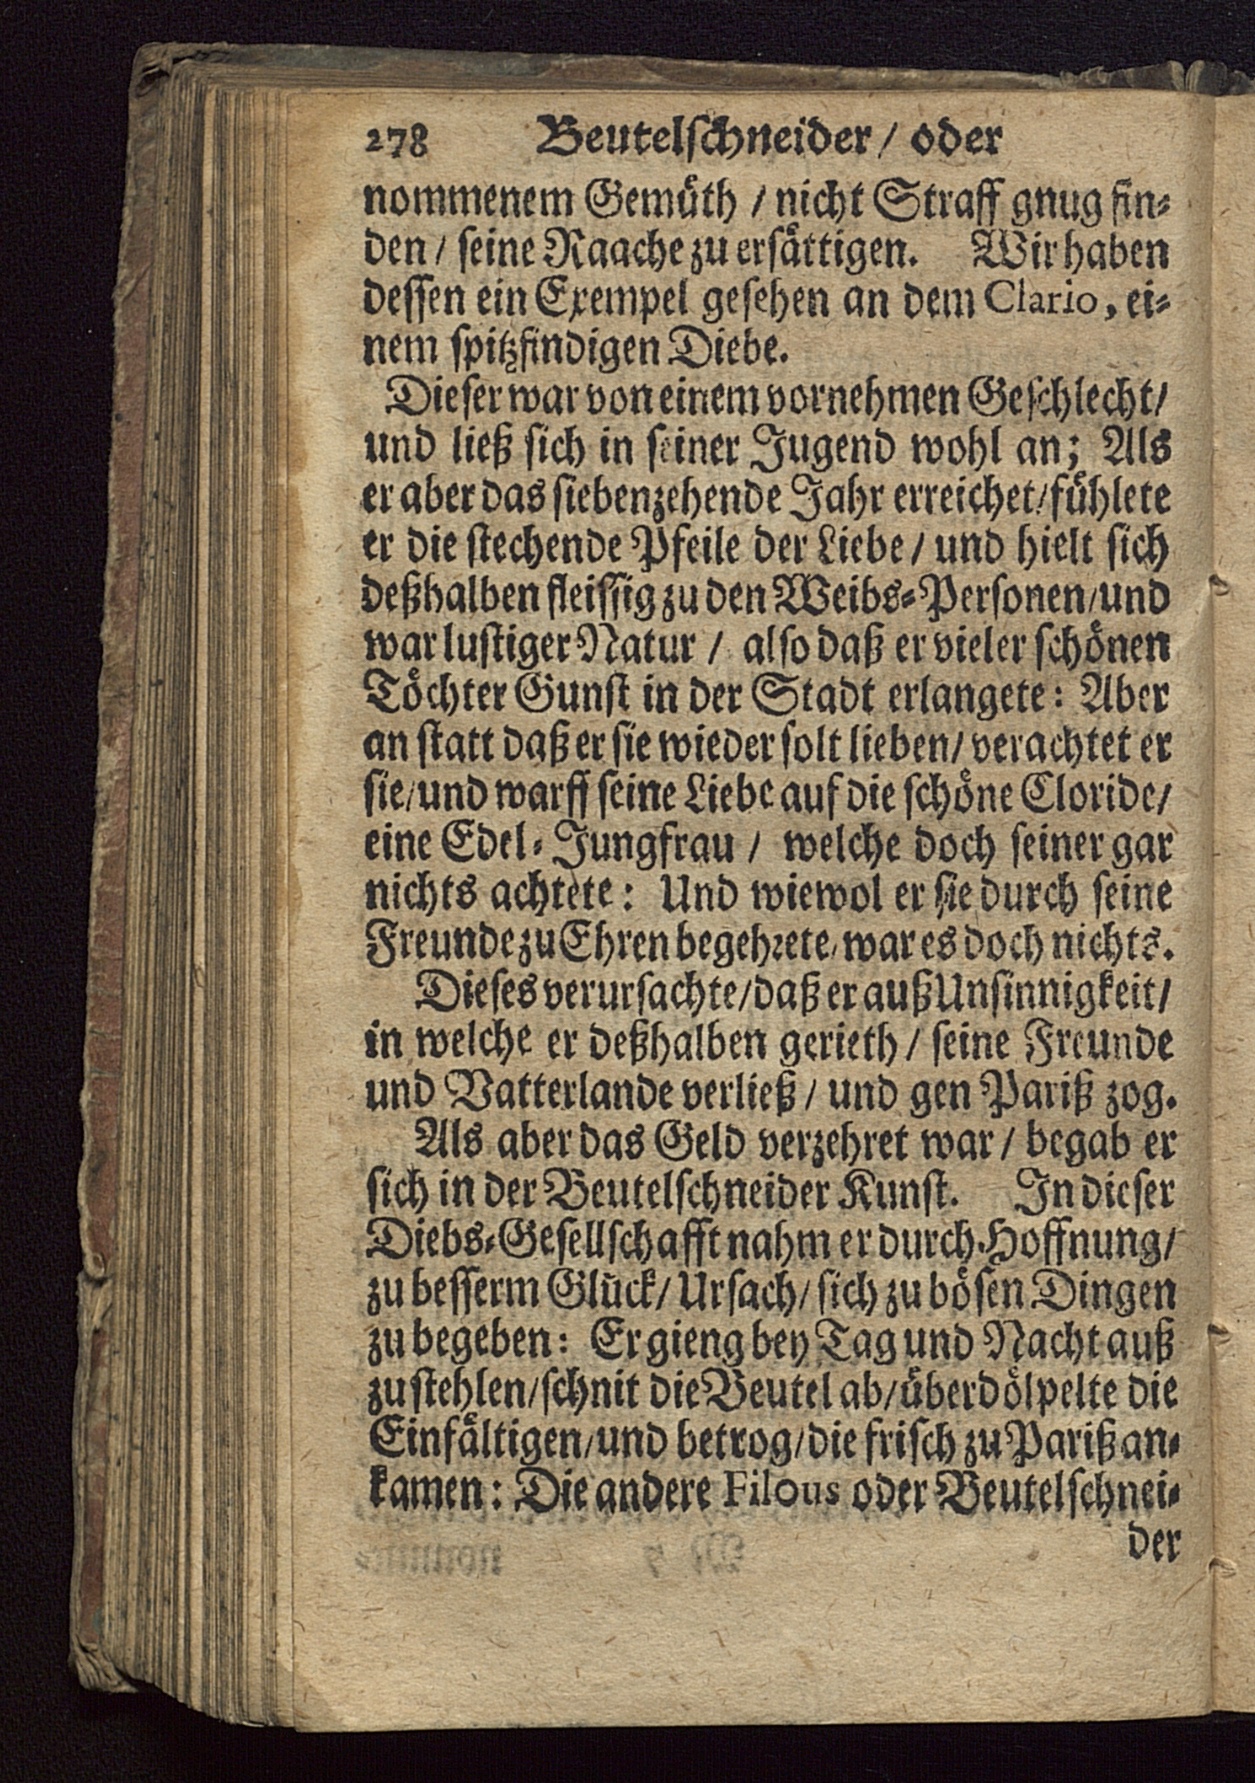 278 Beutelschneider / oder
nommenem Gemüth / nicht Straff gnug fin-
den / seine Raache zu ersättigen. Wir haben
dessen ein Exempel gesehen an dem Clario, ei-
nem spitzfindigen Diebe.
Dieser war von einem vornehmen Geschlecht /
und ließ sich in seiner Jugend wohl an; Als
er aber das siebenzehende Jahr erreichet / fühlete
er die stechende Pfeile der Liebe / und hielt sich
deßhalben fleissig zu den Weibs-Personen / und
war lustiger Natur / also daß er vieler schönen
Töchter Gunst in der Stadt erlangete: Aber
an statt daß er sie wieder solt lieben / verachtet er
sie / und warff seine Liebe auf die schöne Cloride /
eine Edel-Jungfrau / welche doch seiner gar
nichts achtete: Und wiewol er sie durch seine
Freunde zu Ehren begehrete / war es doch nichts.
Dieses verursachte / daß er auß Unsinnigkeit /
in welche er deßhalben gerieth / seine Freunde
und Vatterlande verließ / und gen Pariß zog.
Als aber das Geld verzehret war / begab er
sich in der Beutelschneider Kunst. In dieser
Diebs-Gesellschafft nahm er durch Hoffnung /
zu besserm Glück / Ursach / sich zu bösen Dingen
zu begeben: Er gieng bey Tag und Nacht auß
zu stehlen / schnit die Beutel ab / überdölpelte die
Einfältigen / und betrog / die frisch zu Pariß an-
kamen: Die andere Filous oder Beutelschnei-
der